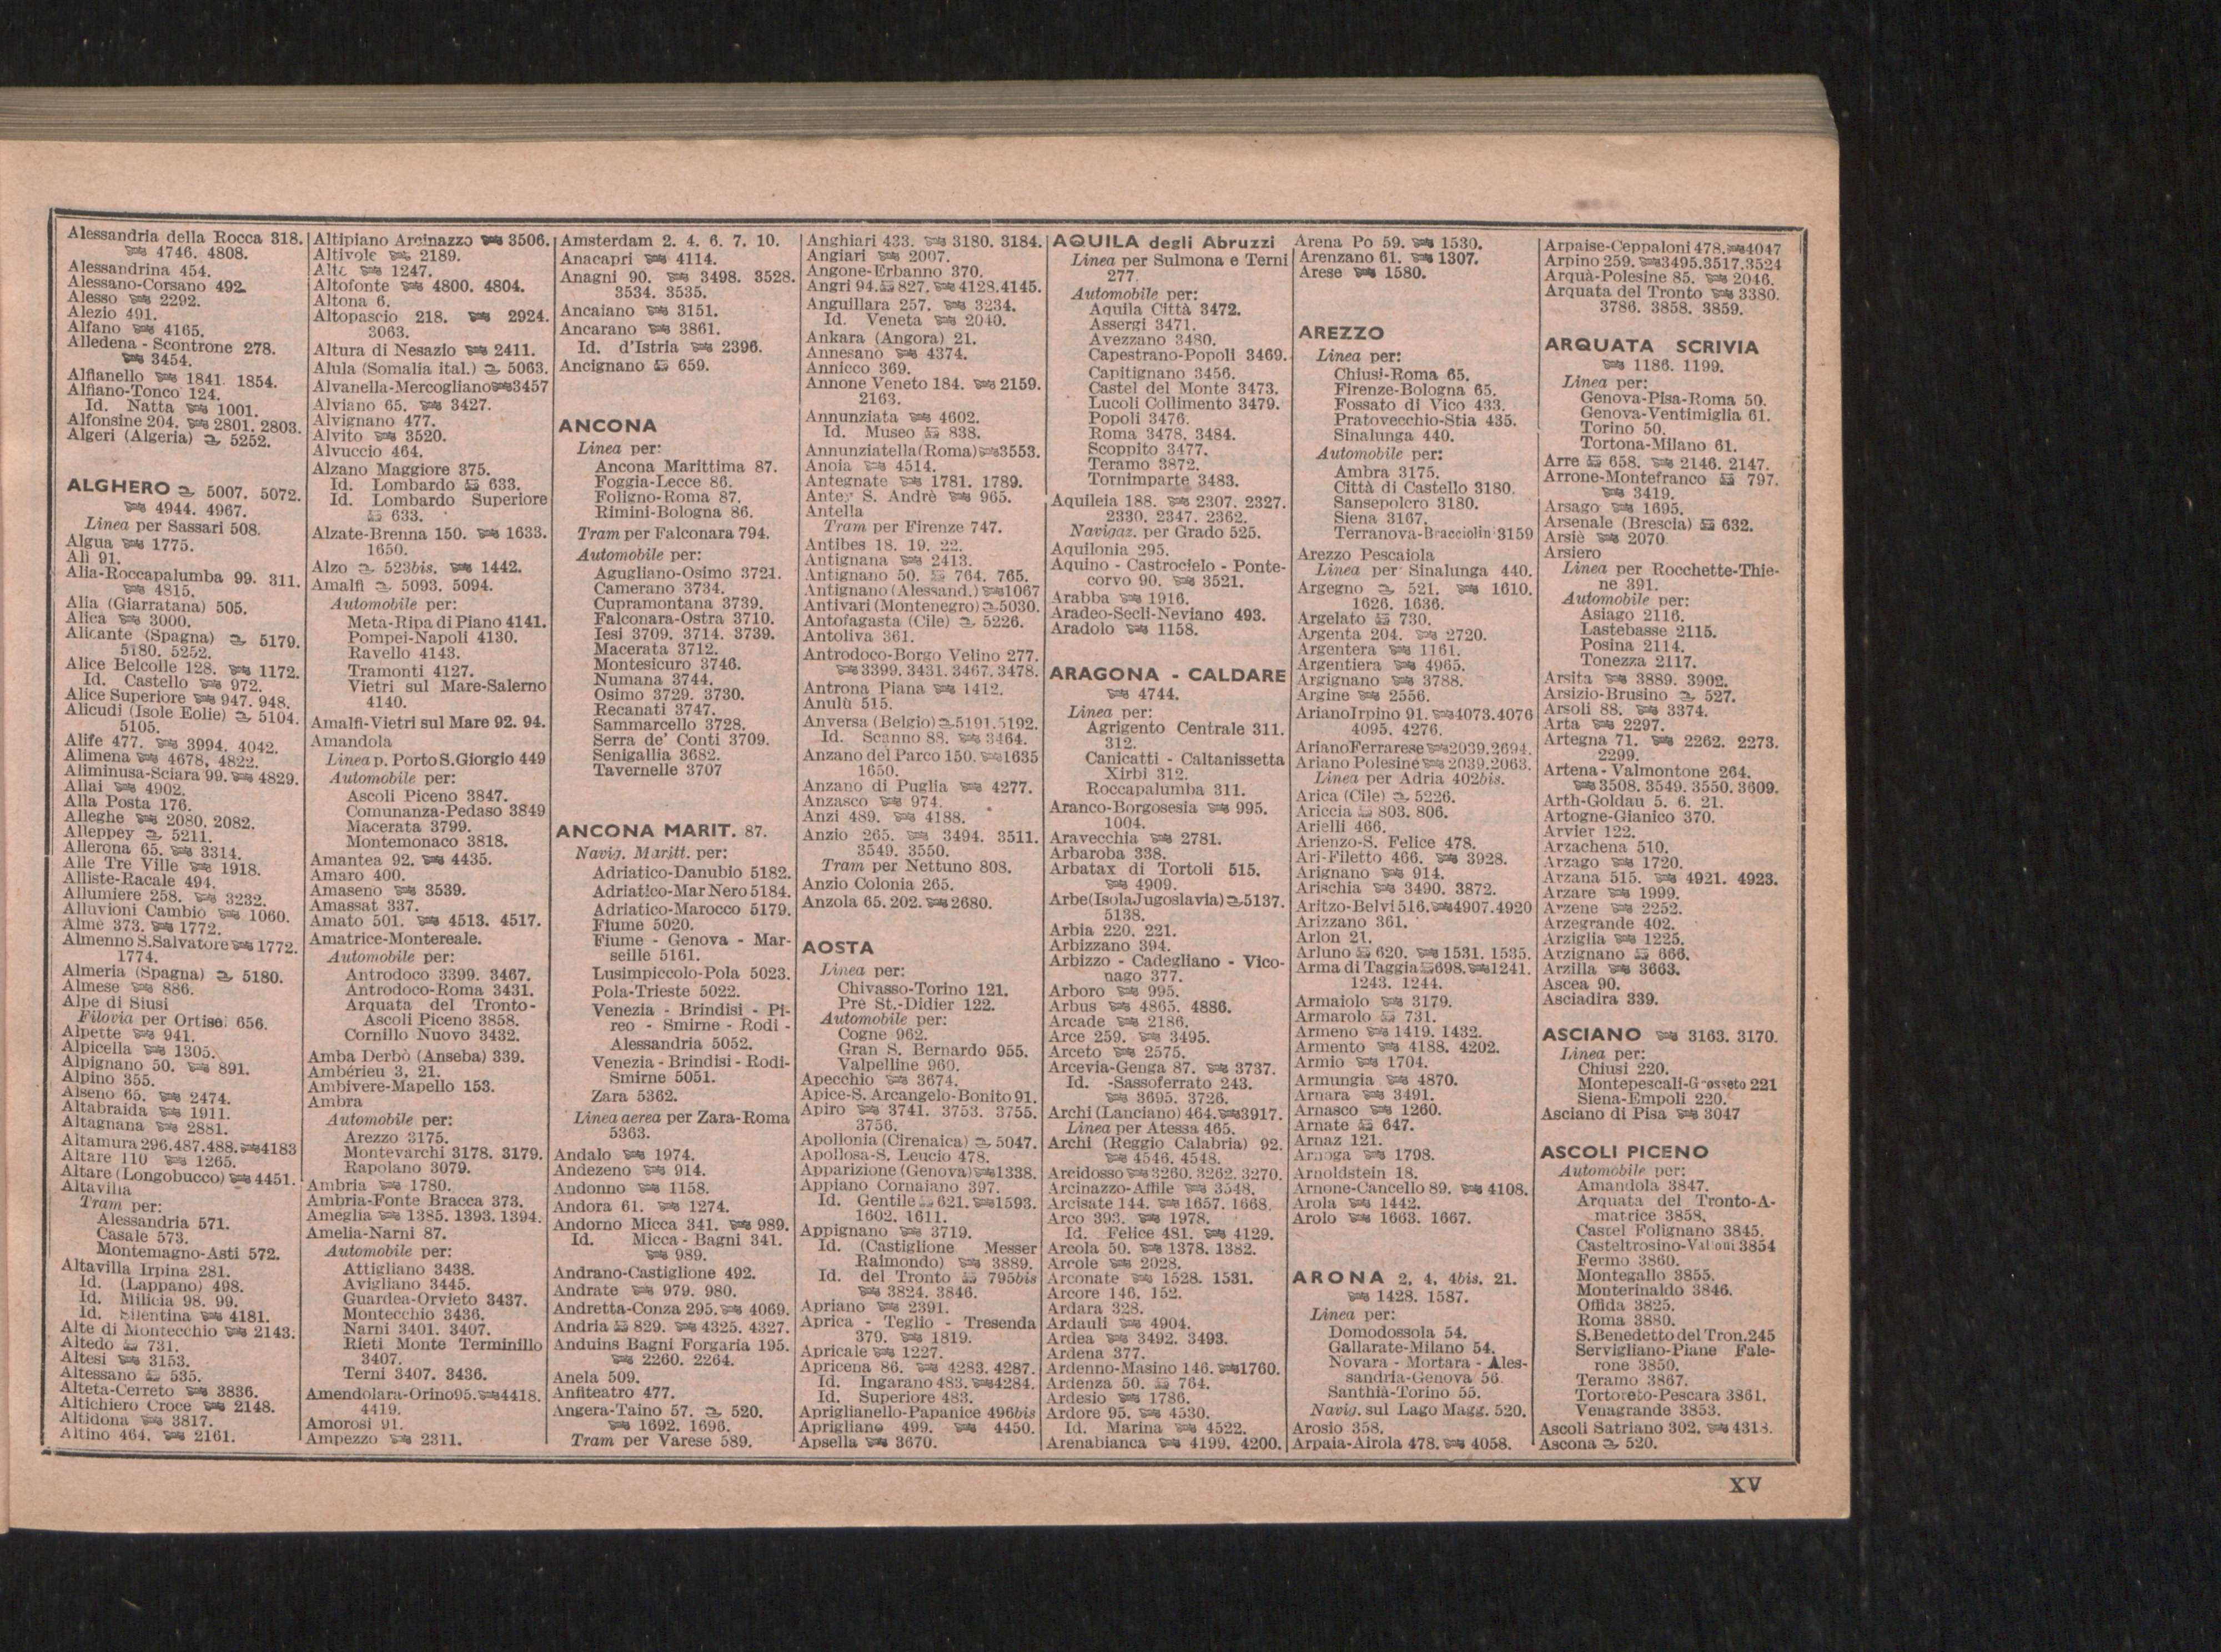 Alessandria della Rocca 318.
4746. 4808.
Alessandrina 454.
Alessano-Corsano 492.
Alesso 2292.
Alezio 491.
Alfano 4165.
Alfedena - Scontrone 278.
3454.
Alfianello 1841. 1854.
Alfiano-Tonco 124.
Id. Natta 1001.
Alfonsine 204. 2801. 2803.
Algeri (Algeria) 5252.
ALGHERO 5007. 5072.
4944. 4967.
Linea per Sassari 508.
Algua 1775.
Alì 91.
Alia-Roccapalumba 99. 311.
4815.
Alia (Giarratana) 505.
Alica 3000.
Alicante (Spagna) 5179.
5180. 5252.
Alice Belcolle 128. 1172.
Id. Castello 972.
Alice Superiore 947. 948.
Alicudi (Isole Eolie) 5104.
5105.
Alife 477. 3994. 4042.
Alimena 4678. 4822.
Aliminusa-Sciara 99. 4829.
Allai 4902.
Alla Posta 176.
Alleghe 2080. 2082.
Alleppey 5211.
Allerona 65. 3314.
Alle Tre Ville 1918.
Alliste-Racale 494.
Allumiere 258. 3232.
Alluvioni Cambio 1060.
Almè 373. 1772.
Almenno S.Salvatore 1772.
1774.
Almeria (Spagna) 5180.
Almese 886.
Alpe di Siusi
Filovia per Ortisei 656.
Alpette 941.
Alpicella 1305.
Alpignano 50. 891.
Alpino 355.
Alseno 65. 2474.
Altabraida 1911.
Altagnana 2881.
Altamura 296.487.488. 4183
Altare 110 1265.
Altare (Longobucco) 4451.
Altavilla
Tram per:
Alessandria 571.
Casale 573.
Montemagno-Asti 572.
Altavilla Irpina 281.
Id. (Lappano) 498.
Id. Milicia 98. 99.
Id. Silentina 4181.
Alte di Montecchio 2143.
Altedo 731.
Altesi 3153.
Altessano 535.
Alteta-Cerreto 3836.
Altichiero Croce 2148.
Altidona 3817.
Altino 464. 2161.
Altipiano Arcinazzo 3506.
Altivole 2189.
Alto 1247.
Altofonte 4800. 4804.
Altona 6.
Altopascio 218. 2924.
3063.
Altura di Nesazio 2411.
Alula (Somalia ital.) 5063.
Alvanella-Mercogliano 3457
Alviano 65. 3427.
Alvignano 477.
Alvito 3520.
Alvuccio 464.
Alzano Maggiore 375.
Id. Lombardo 633.
Id. Lombardo Superiore
633.
Alzate-Brenna 150. 1633.
1650.
Alzo 523bis. 1442.
Amalfi 5093. 5094.
Automobile per:
Meta-Ripa di Piano 4141.
Pompei-Napoli 4130.
Ravello 4143.
Tramonti 4127.
Vietri sul Mare-Salerno
4140.
Amalfi-Vietri sul Mare 92. 94.
Amandola
Linea p. Porto S.Giorgio 449
Automobile per:
Ascoli Piceno 3847.
Comunanza-Pedaso 3849
Macerata 3799.
Montemonaco 3818.
Amantea 92. 4435.
Amaro 400.
Amaseno 3539.
Amassat 337.
Amato 501. 4513. 4517.
Amatrice-Montereale.
Automobile per:
Antrodoco 3399. 3467.
Antrodoco-Roma 3431.
Arquata del Tronto-
Ascoli Piceno 3858.
Cornillo Nuovo 3432.
Amba Derbò (Anseba) 339.
Ambérieu 3. 21.
Ambivere-Mapello 153.
Ambra
Automobile per:
Arezzo 3175.
Montevarchi 3178. 3179.
Rapolano 3079.
Ambria 1780.
Ambria-Fonte Bracca 373.
Ameglia 1385. 1393. 1394.
Amelia-Narni 87.
Automobile per:
Attigliano 3438.
Avigliano 3445.
Guardea-Orvieto 3437.
Montecchio 3436.
Narni 3401. 3407.
Rieti Monte Terminillo
3407.
Terni 3407. 3436.
Amendolara-Orino95. 4418.
4419.
Amorosi 91.
Ampezzo 2311.
Amsterdam 2. 4. 6. 7. 10.
Anacapri 4114.
Anagni 90. 3498. 3528.
3534. 3535.
Ancaiano 3151.
Ancarano 3861.
Id. d'Istria 2396.
Ancignano 659.
ANCONA
Linea per:
Ancona Marittima 87.
Foggia-Lecce 86.
Foligno-Roma 87.
Rimini-Bologna 86.
Tram per Falconara 794.
Automobile per:
Agugliano-Osimo 3721.
Camerano 3734.
Cupramontana 3739.
Falconara-Ostra 3710.
Iesi 3709. 3714. 3739.
Macerata 3712.
Montesicuro 3746.
Numana 3744.
Osimo 3729. 3730.
Recanati 3747.
Sammarcello 3728.
Serra de' Conti 3709.
Senigallia 3682.
Tavernelle 3707
ANCONA MARIT. 87.
Navig. Maritt. per:
Adriatico-Danubio 5182.
Adriatico-Mar Nero 5184.
Adriatico-Marocco 5179.
Fiume 5020.
Fiume - Genova - Mar-
seille 5161.
Lusimpiccolo-Pola 5023.
Pola-Trieste 5022.
Venezia - Brindisi - Pi-
reo - Smirne - Rodi -
Alessandria 5052.
Venezia - Brindisi - Rodi-
Smirne 5051.
Zara 5362.
Linea aerea per Zara-Roma
5363.
Andalo 1974.
Andezeno 914.
Andonno 1158.
Andora 61. 1274.
Andorno Micca 341. 989.
Id. Micca - Bagni 341.
989.
Andrano-Castiglione 492.
Andrate 979. 980.
Andretta-Conza 295. 4069.
Andria 829. 4325. 4327.
Anduins Bagni Forgaria 195.
2260. 2264.
Anela 509.
Anfiteatro 477.
Angera-Taino 57. 520.
1692. 1696.
Tram per Varese 589.
Anghiari 433. 3180. 3184.
Angiari 2007.
Angone-Erbanno 370.
Angri 94. 827. 4128.4145.
Anguillara 257. 3234.
Id. Veneta 2040.
Ankara (Angora) 21.
Annesano 4374.
Annicco 369.
Annone Veneto 184. 2159.
2163.
Annunziata 4602.
Id. Museo 838.
Annunziatella(Roma) 3553.
Anoia 4514.
Antegnate 1781. 1789.
Antey S. Andrè 965.
Antella
Tram per Firenze 747.
Antibes 18. 19. 22.
Antignana 2413.
Antignano 50. 764. 765.
Antignano (Alessand.) 1067
Antivari (Montenegro) 5030.
Antofagasta (Cile) 5226.
Antoliva 361.
Antrodoco-Borgo Velino 277.
3399. 3431. 3467. 3478.
Antrona Piana 1412.
Anulù 515.
Anversa (Belgio) 5191.5192.
Id. Scanno 88. 3464.
Anzano del Parco 150. 1635
1650.
Anzano di Puglia 4277.
Anzasco 974.
Anzi 489. 4188.
Anzio 265. 3494. 3511.
3549. 3550.
Tram per Nettuno 808.
Anzio Colonia 265.
Anzola 65. 202. 2680.
AOSTA
Linea per:
Chivasso-Torino 121.
Prè St.-Didier 122.
Automobile per:
Cogne 962.
Gran S. Bernardo 955.
Valpelline 960.
Apecchio 3674.
Apice-S. Arcangelo-Bonito 91.
Apiro 3741. 3753. 3755.
3756.
Apollonia (Cirenaica) 5047.
Apollosa-S. Leucio 478.
Apparizione (Genova) 1338.
Appiano Cornaiano 397.
Id. Gentile 621. 1593.
1602. 1611.
Appignano 3719.
Id. (Castiglione Messer
Raimondo) 3889.
Id. del Tronto 795bis
3824. 3846.
Apriano 2391.
Aprica - Teglio - Tresenda
379. 1819.
Apricale 1227.
Apricena 86. 4283. 4287.
Id. Ingarano 483. 4284.
Id. Superiore 483.
Apriglianello-Papanice 496bis
Aprigliano 499. 4450.
Apsella 3670.
AQUILA degli Abruzzi
Linea per Sulmona e Terni
277.
Automobile per:
Aquila Città 3472.
Assergi 3471.
Avezzano 3480.
Capestrano-Popoli 3469.
Capitignano 3456.
Castel del Monte 3473.
Lucoli Collimento 3479.
Popoli 3476.
Roma 3478. 3484.
Scoppito 3477.
Teramo 3872.
Tornimparte 3483.
Aquileia 188. 2307. 2327.
2330. 2347. 2362.
Navigaz. per Grado 525.
Aquilonia 295.
Aquino - Castrocielo - Ponte-
corvo 90. 3521.
Arabba 1916.
Aradeo-Seclì-Neviano 493.
Aradolo 1158.
ARAGONA - CALDARE
4744.
Linea per:
Agrigento Centrale 311.
312.
Canicatti - Caltanissetta
Xirbi 312.
Roccapalumba 311.
Aranco-Borgosesia 995.
1004.
Aravecchia 2781.
Arbaroba 338.
Arbatax di Tortoli 515.
4909.
Arbe(IsolaJugoslavia) 5137.
5138.
Arbia 220. 221.
Arbizzano 394.
Arbizzo - Cadegliano - Vico-
nago 377.
Arboro 995.
Arbus 4865. 4886.
Arcade 2186.
Arce 259. 3495.
Arceto 2575.
Arcevia-Genga 87. 3737.
Id. -Sassoferrato 243.
3695. 3726.
Archi (Lanciano) 464. 3917.
Linea per Atessa 465.
Archi (Reggio Calabria) 92.
4546. 4548.
Arcidosso 3260. 3262. 3270.
Arcinazzo-Affile 3548.
Arcisate 144. 1657. 1668.
Arco 393. 1978.
Id. Felice 481. 4129.
Arcola 50. 1378. 1382.
Arcole 2028.
Arconate 1528. 1531.
Arcore 146. 152.
Ardara 328.
Ardauli 4904.
Ardea 3492. 3493.
Ardena 377.
Ardenno-Masino 146. 1760.
Ardenza 50. 764.
Ardesio 1786.
Ardore 95. 4530.
Id. Marina 4522.
Arenabianca 4199. 4200.
Arena Po 59. 1530.
Arenzano 61. 1307.
Arese 1580.
AREZZO
Linea per:
Chiusi-Roma 65.
Firenze-Bologna 65.
Fossato di Vico 433.
Pratovecchio-Stia 435.
Sinalunga 440.
Automobile per:
Ambra 3175.
Città di Castello 3180.
Sansepolcro 3180.
Siena 3167.
Terranova-Bracciolin 3159
Arezzo Pescaiola
Linea per Sinalunga 440.
Argegno 521. 1610.
1626. 1636.
Argelato 730.
Argenta 204. 2720.
Argentera 1161.
Argentiera 4965.
Argignano 3788.
Argine 2556.
ArianoIrpino 91. 4073.4076
4095. 4276.
ArianoFerrarese 2039.2694.
Ariano Polesine 2039.2063.
Linea per Adria 402bis.
Arica (Cile) 5226.
Ariccia 803. 806.
Arielli 466.
Arienzo-S. Felice 478.
Ari-Filetto 466. 3928.
Arignano 914.
Arischia 3490. 3872.
Aritzo-Belvì 516. 4907.4920
Arizzano 361.
Arlon 21.
Arluno 620. 1531. 1535.
Arma di Taggia 698. 1241.
1243. 1244.
Armaiolo 3179.
Armarolo 731.
Armeno 1419. 1432.
Armento 4188. 4202.
Armio 1704.
Armungia 4870.
Arnara 3491.
Arnasco 1260.
Arnate 647.
Arnaz 121.
Arnoga 1798.
Arnoldstein 18.
Arnone-Cancello 89. 4108.
Arola 1442.
Arolo 1663. 1667.
ARONA 2. 4. 4bis. 21.
1428. 1587.
Linea per:
Domodossola 54.
Gallarate-Milano 54.
Novara - Mortara - Ales-
sandria-Genova 56.
Santhià-Torino 55.
Navig. sul Lago Magg. 520.
Arosio 358.
Arpaia-Airola 478. 4058.
Arpaise-Ceppaloni 478. 4047
Arpino 259. 3495.3517.3524
Arquà-Polesine 85. 2046.
Arquata del Tronto 3380.
3786. 3858. 3859.
ARQUATA SCRIVIA
1186. 1199.
Linea per:
Genova-Pisa-Roma 50.
Genova-Ventimiglia 61.
Torino 50.
Tortona-Milano 61.
Arre 658. 2146. 2147.
Arrone-Montefranco 797.
3419.
Arsago 1695.
Arsenale (Brescia) 632.
Arsiè 2070.
Arsiero
Linea per Rocchette-Thie-
ne 391.
Automobile per:
Asiago 2116.
Lastebasse 2115.
Posina 2114.
Tonezza 2117.
Arsita 3889. 3902.
Arsizio-Brusino 527.
Arsoli 88. 3374.
Arta 2297.
Artegna 71. 2262. 2273.
2299.
Artena - Valmontone 264.
3508. 3549. 3550. 3609.
Arth-Goldau 5. 6. 21.
Artogne-Gianico 370.
Arvier 122.
Arzachena 510.
Arzago 1720.
Arzana 515. 4921. 4923.
Arzare 1999.
Arzene 2252.
Arzegrande 402.
Arziglia 1225.
Arzignano 666.
Arzilla 3663.
Ascea 90.
Asciadira 339.
ASCIANO 3163. 3170.
Linea per:
Chiusi 220.
Montepescali-Grosseto 221
Siena-Empoli 220.
Asciano di Pisa 3047
ASCOLI PICENO
Automobile per:
Amandola 3847.
Arquata del Tronto-A-
matrice 3858.
Castel Folignano 3845.
Casteltrosino-Valloni 3854
Fermo 3860.
Montegallo 3855.
Monterinaldo 3846.
Offida 3825.
Roma 3880.
S.Benedetto del Tron.245
Servigliano-Piane Fale-
rone 3850.
Teramo 3867.
Tortoreto-Pescara 3861.
Venagrande 3853.
Ascoli Satriano 302. 4318.
Ascona 520.
XV